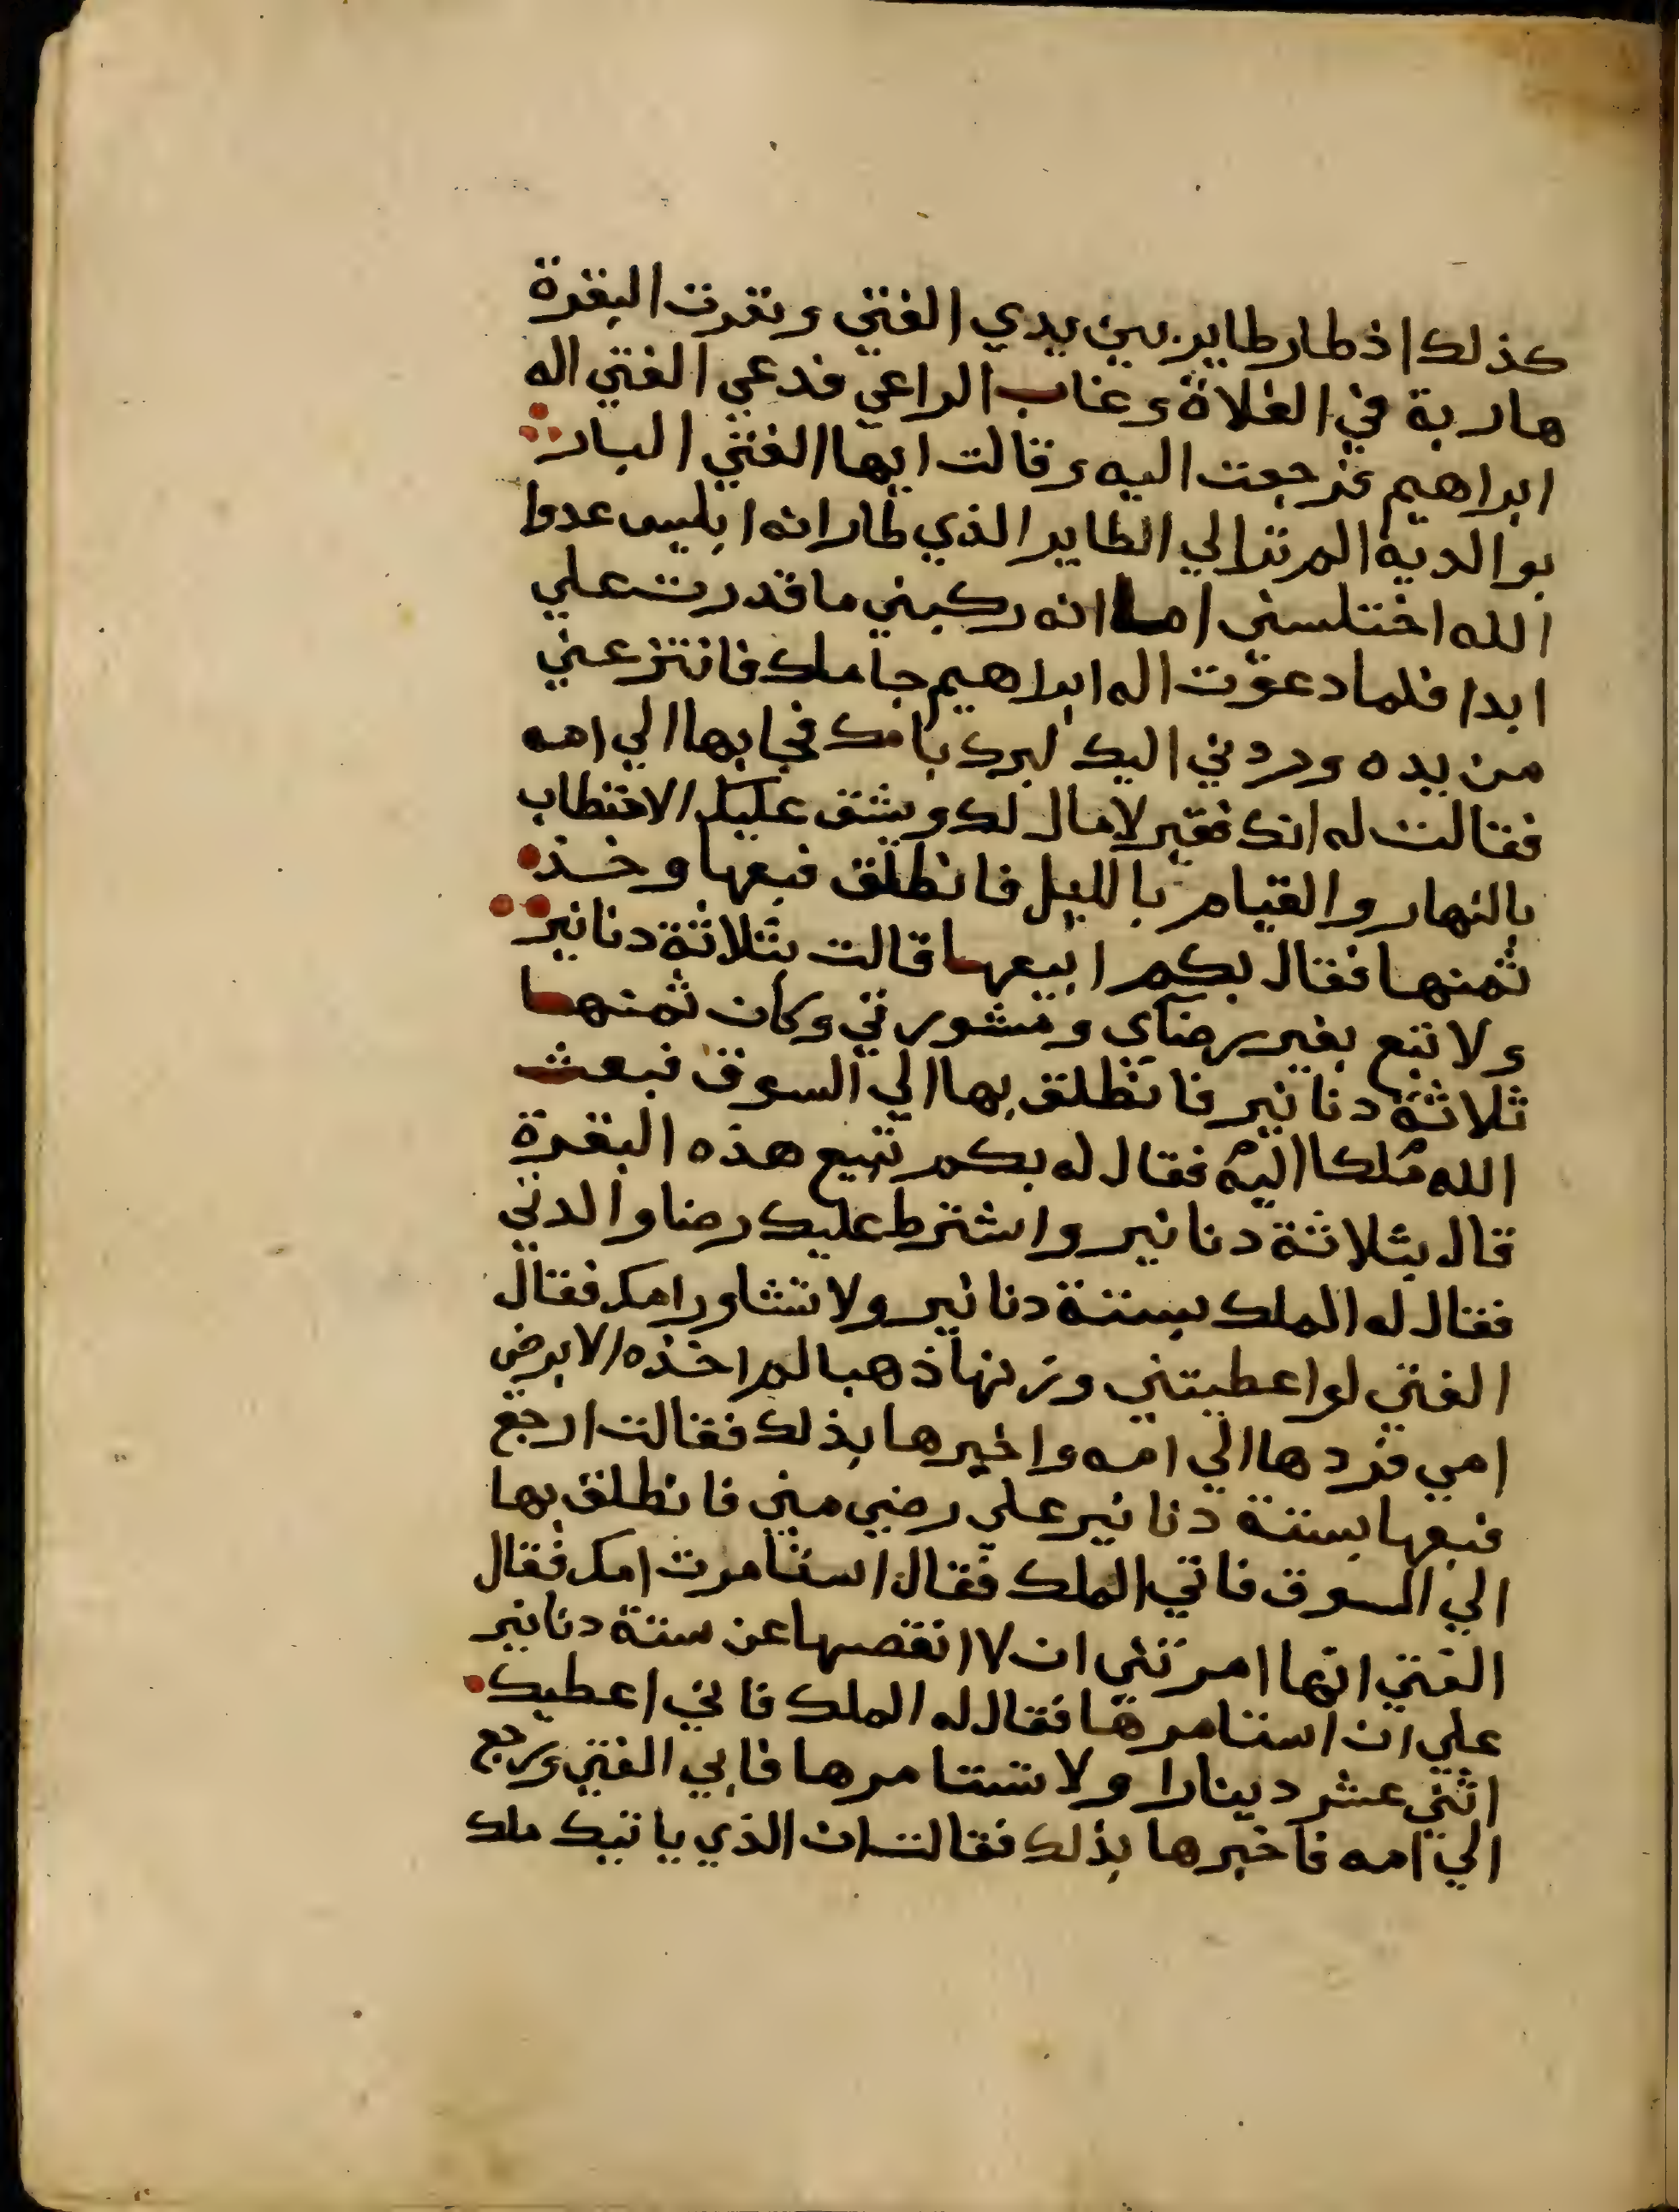 كذلك اذ طار طاير بين يدي الفتي ونفرت البقرة
هاربة في الفلاة وغاب الراعي فدعي الفتي اله
ابراهيم فرجعت اليه وقالت ايها الفتي البار
بوالديه الم تر الي الطاير الذي طار انه ابليس عدوا
الله اختلسني اما انه ركبني ما قدرت علي
ابدا فلما دعوت اله ابراهيم جا ملك فانتزعني
من يده وردني اليك لبرك بامك فجا بها الي امه
فقالت له انك فقير لا مال لك ويشق عليك الاحتطاب
بالنهار والقيام بالليل فانطلق فبعها وخذ
ثمنها فقال بكم ابيعها قالت بثلاثة دنانير
ولا تبع بغير رضاي ومشورتي وكان ثمنها
ثلاثة دنانير فانطلق بها الي السوق فبعث
الله ملكا اليه فقال له بكم تبيع هذه البقرة
قال بثلاثة دنانير واشترط عليك رضا والدتي
فقال له الملك بستة دنانير ولا تشاور امك فقال
الفتي لو اعطيتني وزنها ذهبا لم اخذه الا برضي
امي فردها الي امه واخبرها بذلك فقالت ارجع
فبعها بستة دنانير علي رضي مني فانطلق بها
الي السوق فاتي الملك فقال استامرت امك فقال
الفتي انها امرتني ان لا انقصها عن ستة دنانير
علي ان استامرها فقال له الملك فاني اعطيك
اثني عشر دينارا ولا تستامرها فابي الفتي ورجع
الي امه فاخبرها بذلك فقالت ان الذي ياتيك ملك